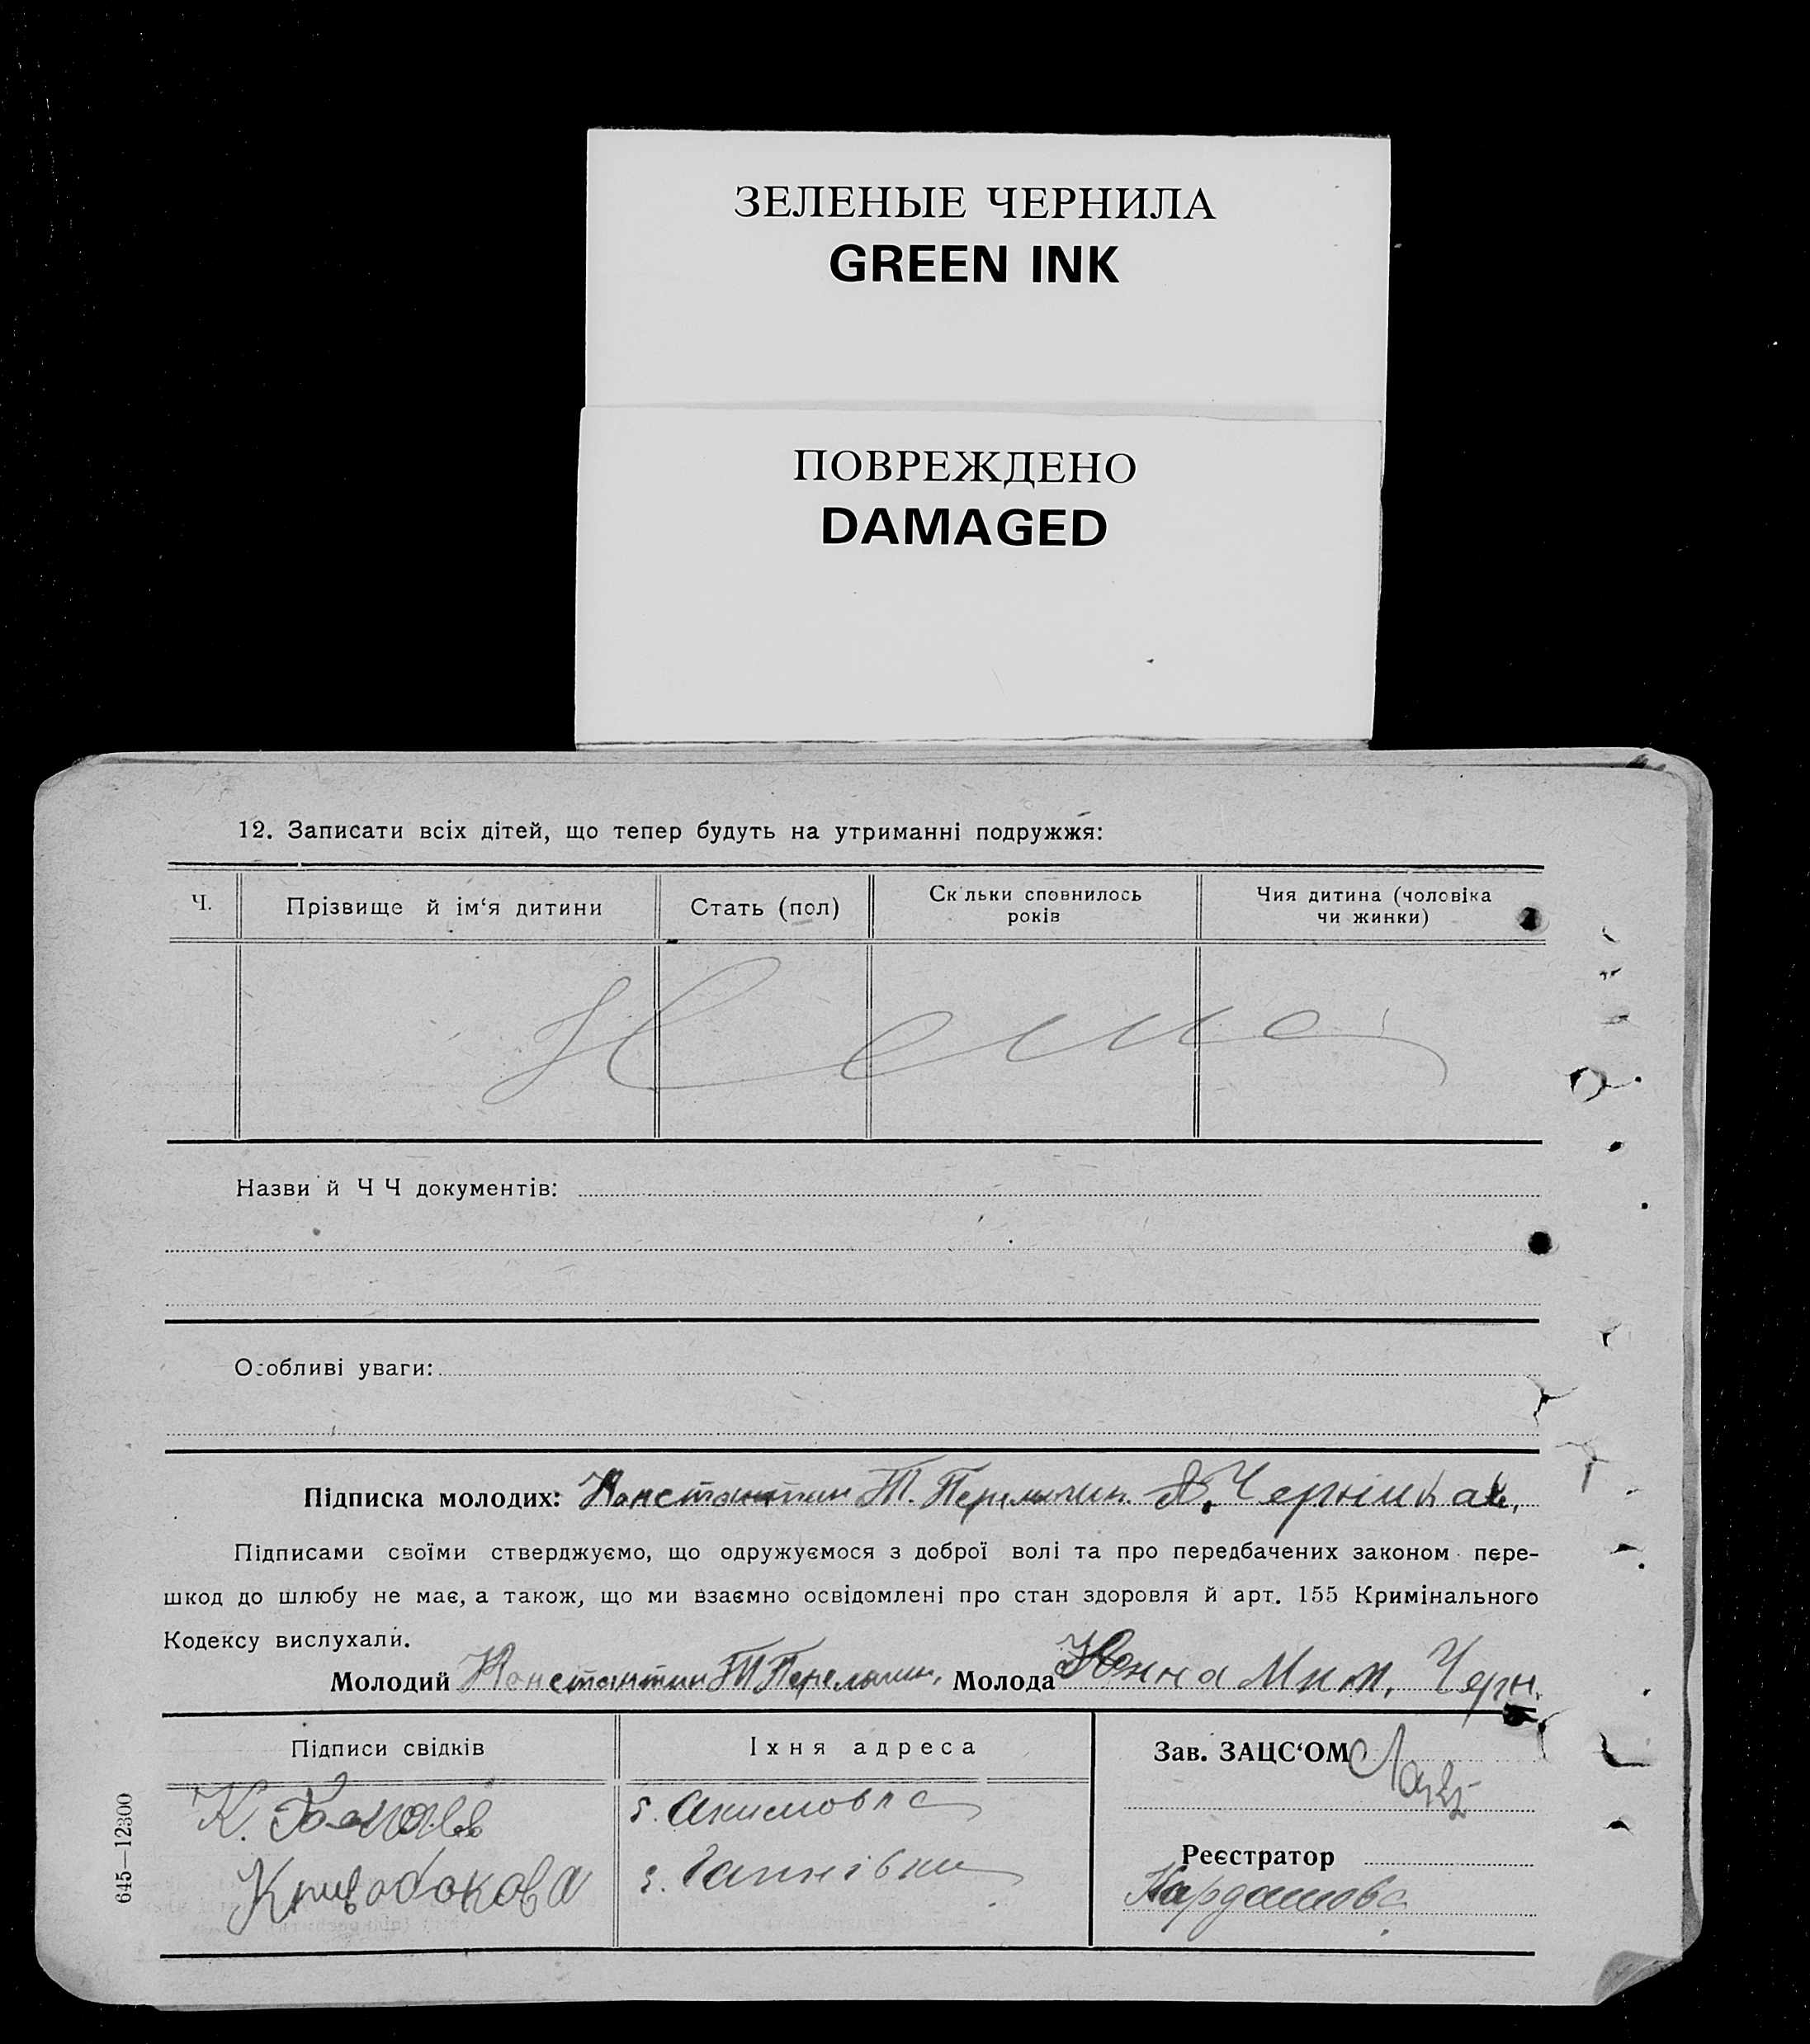 ЗЕЛЕНЫЕ ЧЕРНИЛА
GREEN INK
ПОВРЕЖДЕНО
DAMAGED
12. Записати всіх дітей, що тепер будуть на утриманні подружжя:
Ч.
Прізвище й ім‘я дитини
Стать (пол)
Ск льки сповнилось
років
Чия дитина (чоловіка
чи жинки)
Нема
Назви й Ч Ч документів:
Особливі уваги:
Підписка молодих: Константин Т. А. Черніцкая,
Підписами своїми стверджуємо, що одружуємося з доброї волі та про передбачених законом пере-
шкод до шлюбу не має, а також, що ми взаємно освідомлені про стан здоровля й арт. 155 Кримінального
Кодексу вислухали.
Молодий Константин Т Молода Черн.
Підписи свідків
Їхня адреса
Зав. ЗАЦС‘ОМ
К.
Кривобокова
с. Акимовка
с. Ганнівка
Реєстратор
Кардашова
645—12300